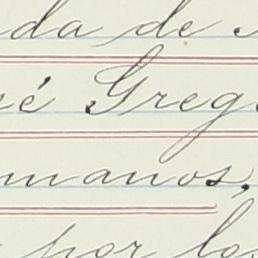 da de
é Greg
manos,
por los